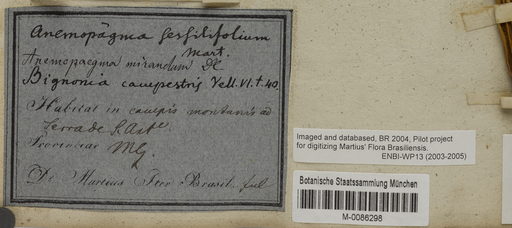 Anemopægma sessilifolium
Mart.
Anemopaegma mirandum DC
Bignonia campestris Vell. VI. t. 40.
Habitat in campis montanis ad
Serra de S. Ant.
Provinciae MG
Dr. Martius Flor. Brasil.
Imaged and databased, BR 2004, Pilot project
for digitizing Martius' Flora Brasiliensis.
ENBI-WP13 (2003-2005)
Botanische Staatssammlung München
M-0086298